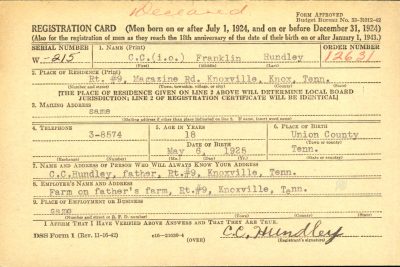 Deceased
FORM APPROVED
Budget Bureau No. 33-R012-42
REGISTRATION CARD (Men born on or after July 1, 1924, and on or before December 31, 1924)
(Also for the registration of men as they reach the 18th anniversary of the date of their birth on or after January 1, 1943.)
SERIAL NUMBER 1. NAME (Print) ORDER NUMBER
W -215 C.C.(i.o.) Franklin Hundley 12631
(First) (Middle) (Last)
2. PLACE OF RESIDENCE (Print)
Rt. #9, Magazine Rd. Knoxville, Knox, Tenn.
(Number and street) (Town, township, village, or city) (County) (State)
[THE PLACE OF RESIDENCE GIVEN ON LINE 2 ABOVE WILL DETERMINE LOCAL BOARD
JURISDICTION; LINE 2 OF REGISTRATION CERTIFICATE WILL BE IDENTICAL]
3. MAILING ADDRESS
same
[Mailing address if other than place indicated on line 2. If same, insert word same]
4. TELEPHONE 5. AGE IN YEARS 6. PLACE OF BIRTH
3-8574 18 Union County
DATE OF BIRTH (Town or county)
May 6, 1925 Tenn.
(Exchange) (Number) (Mo.) (Day) (Yr.) (State or country)
7. NAME AND ADDRESS OF PERSON WHO WILL ALWAYS KNOW YOUR ADDRESS
C.C.Hundley, father, Rt.#9, Knoxville, Tenn.
8. EMPLOYER'S NAME AND ADDRESS
Farm on father's farm, Rt.#9, Knoxville, Tenn.
9. PLACE OF EMPLOYMENT OR BUSINESS
same
(Number and street or R. F. D. number) (Town) (County) (State)
I AFFIRM THAT I HAVE VERIFIED ABOVE ANSWERS AND THAT THEY ARE TRUE.
DSS Form 1 (Rev. 11-16-42) (OVER) C.C. Hundley
(Registrant's signature)